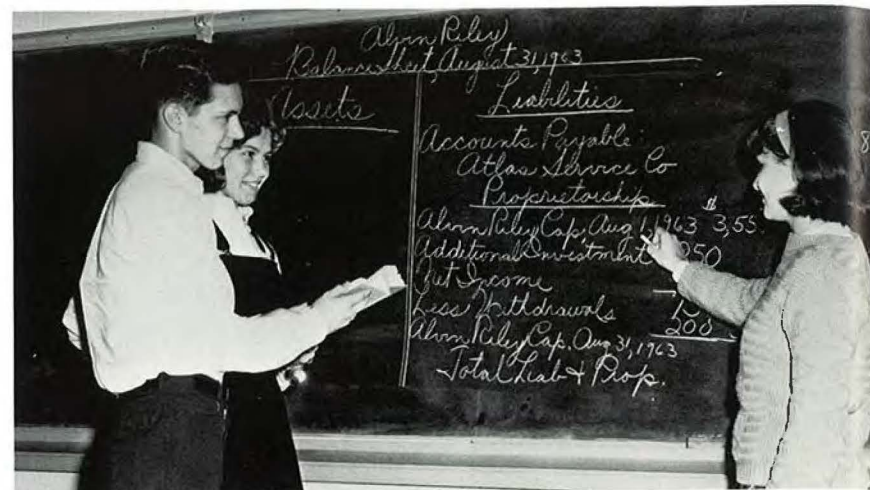 Alvin Riley
Balance Sheet, August 31, 1963
Assets
Liabilities
Accounts Payable:
Atlas Service Co
Proprietorship
Alvin Riley Cap, Aug 1, 1963 $ 3,55
Additional Investment 250
Net Income
Less Withdrawals 200
Alvin Riley Cap. Aug 31, 1963
Total Liab & Prop.
8